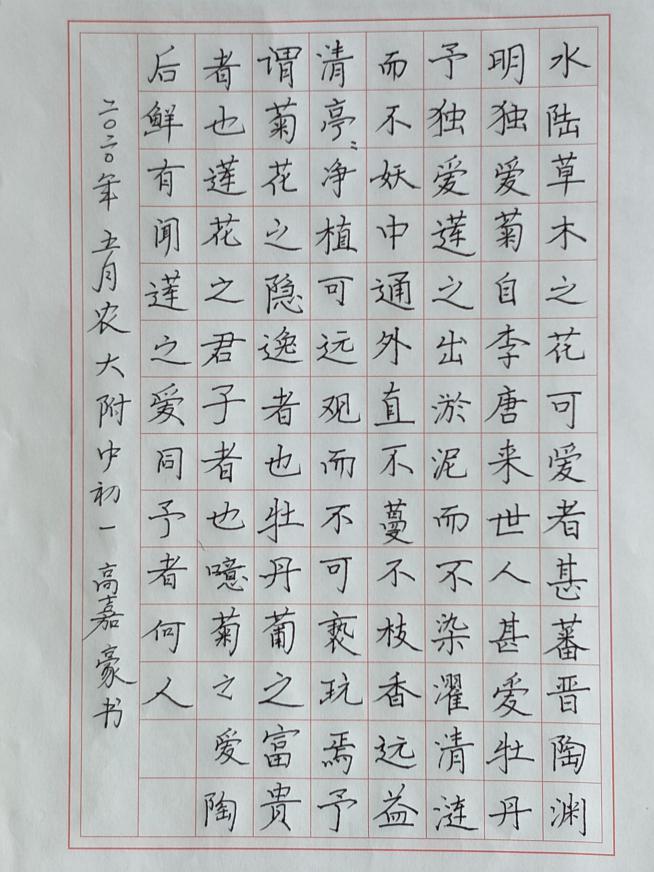 水陆草木之花可爱者甚蕃晋陶渊
明独爱菊自李唐来世人甚爱牡丹
予独爱莲之出淤泥而不染濯清涟
而不妖中通外直不蔓不枝香远益
清亭〃净植可远观而不可亵玩焉予
谓菊花之隐逸者也牡丹葡之富贵
者也莲花之君子者也噫菊之爱陶
后鲜有闻莲之爱同予者何人
二〇二〇年五月农大附中初一高嘉豪书